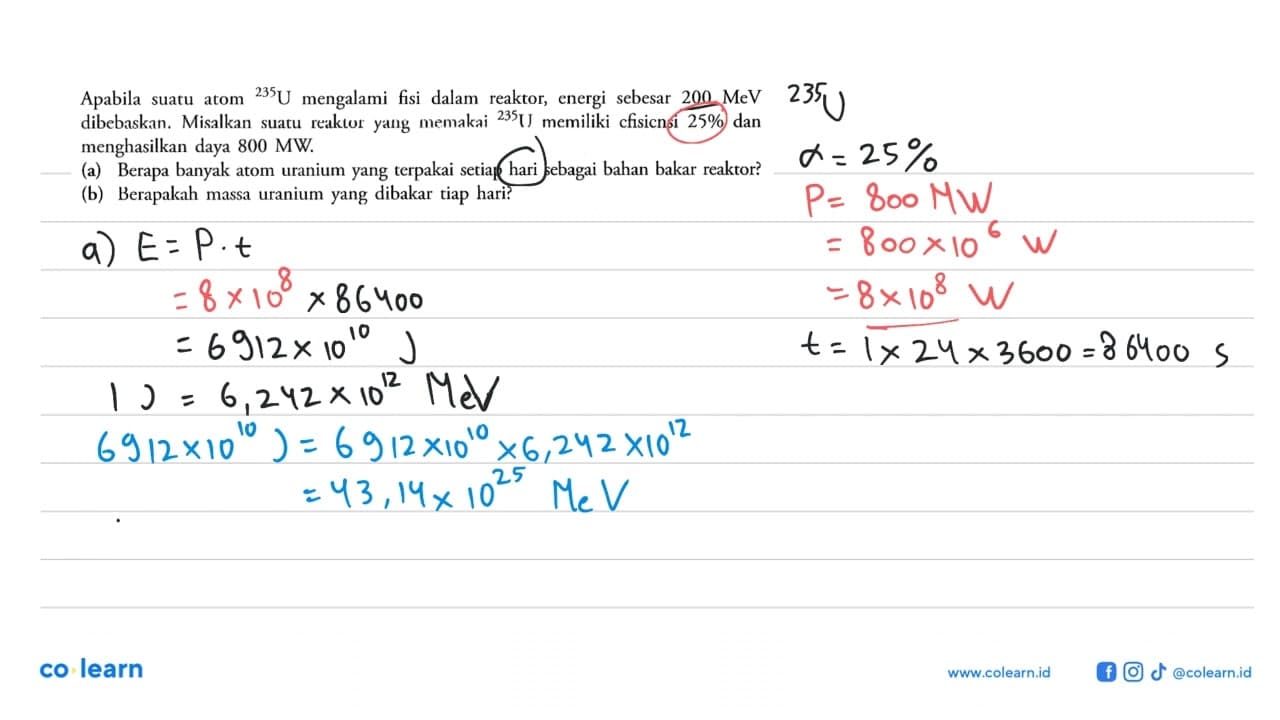 Apabila suatu atom ²³⁵U mengalami fisi dalam reaktor, energi sebesar 200 MeV
dibebaskan. Misalkan suatu reaktor yang memakai ²³⁵U memiliki efisiensi 25% dan
menghasilkan daya 800 MW.
(a) Berapa banyak atom uranium yang terpakai setiap hari sebagai bahan bakar reaktor?
(b) Berapakah massa uranium yang dibakar tiap hari?
²³⁵U
α = 25%
P = 800 MW
= 800 × 10⁶ W
= 8 × 10⁸ W
t = 1 × 24 × 3600 = 86400 s
a) E = P . t
= 8 × 10⁸ × 86400
= 6912 × 10¹⁰ J
1 J = 6,242 × 10¹² MeV
6912 × 10¹⁰ J = 6912 × 10¹⁰ × 6,242 × 10¹²
= 43,14 × 10²⁵ MeV
co·learn
www.colearn.id
@colearn.id